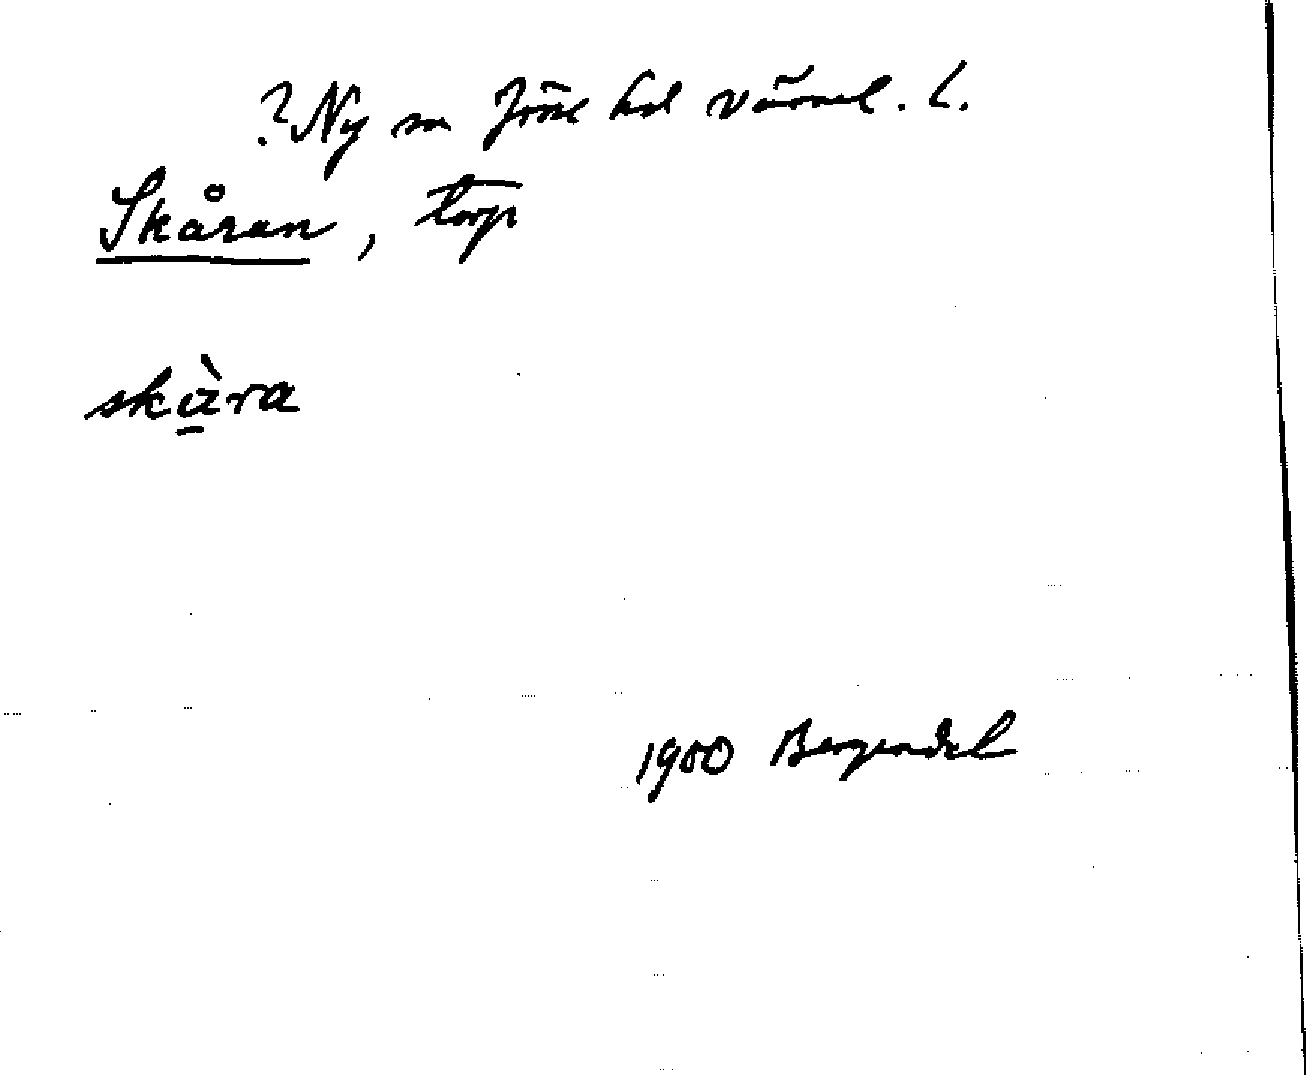 ? Ny sn Jösse hd Värml. l.
Skåran, torp
skà̱ra
1900 Bergendal